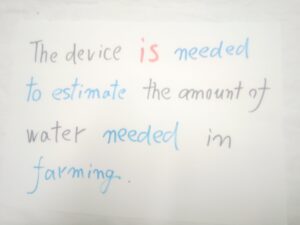 The device is needed
to estimate the amount of
water needed in
farming.